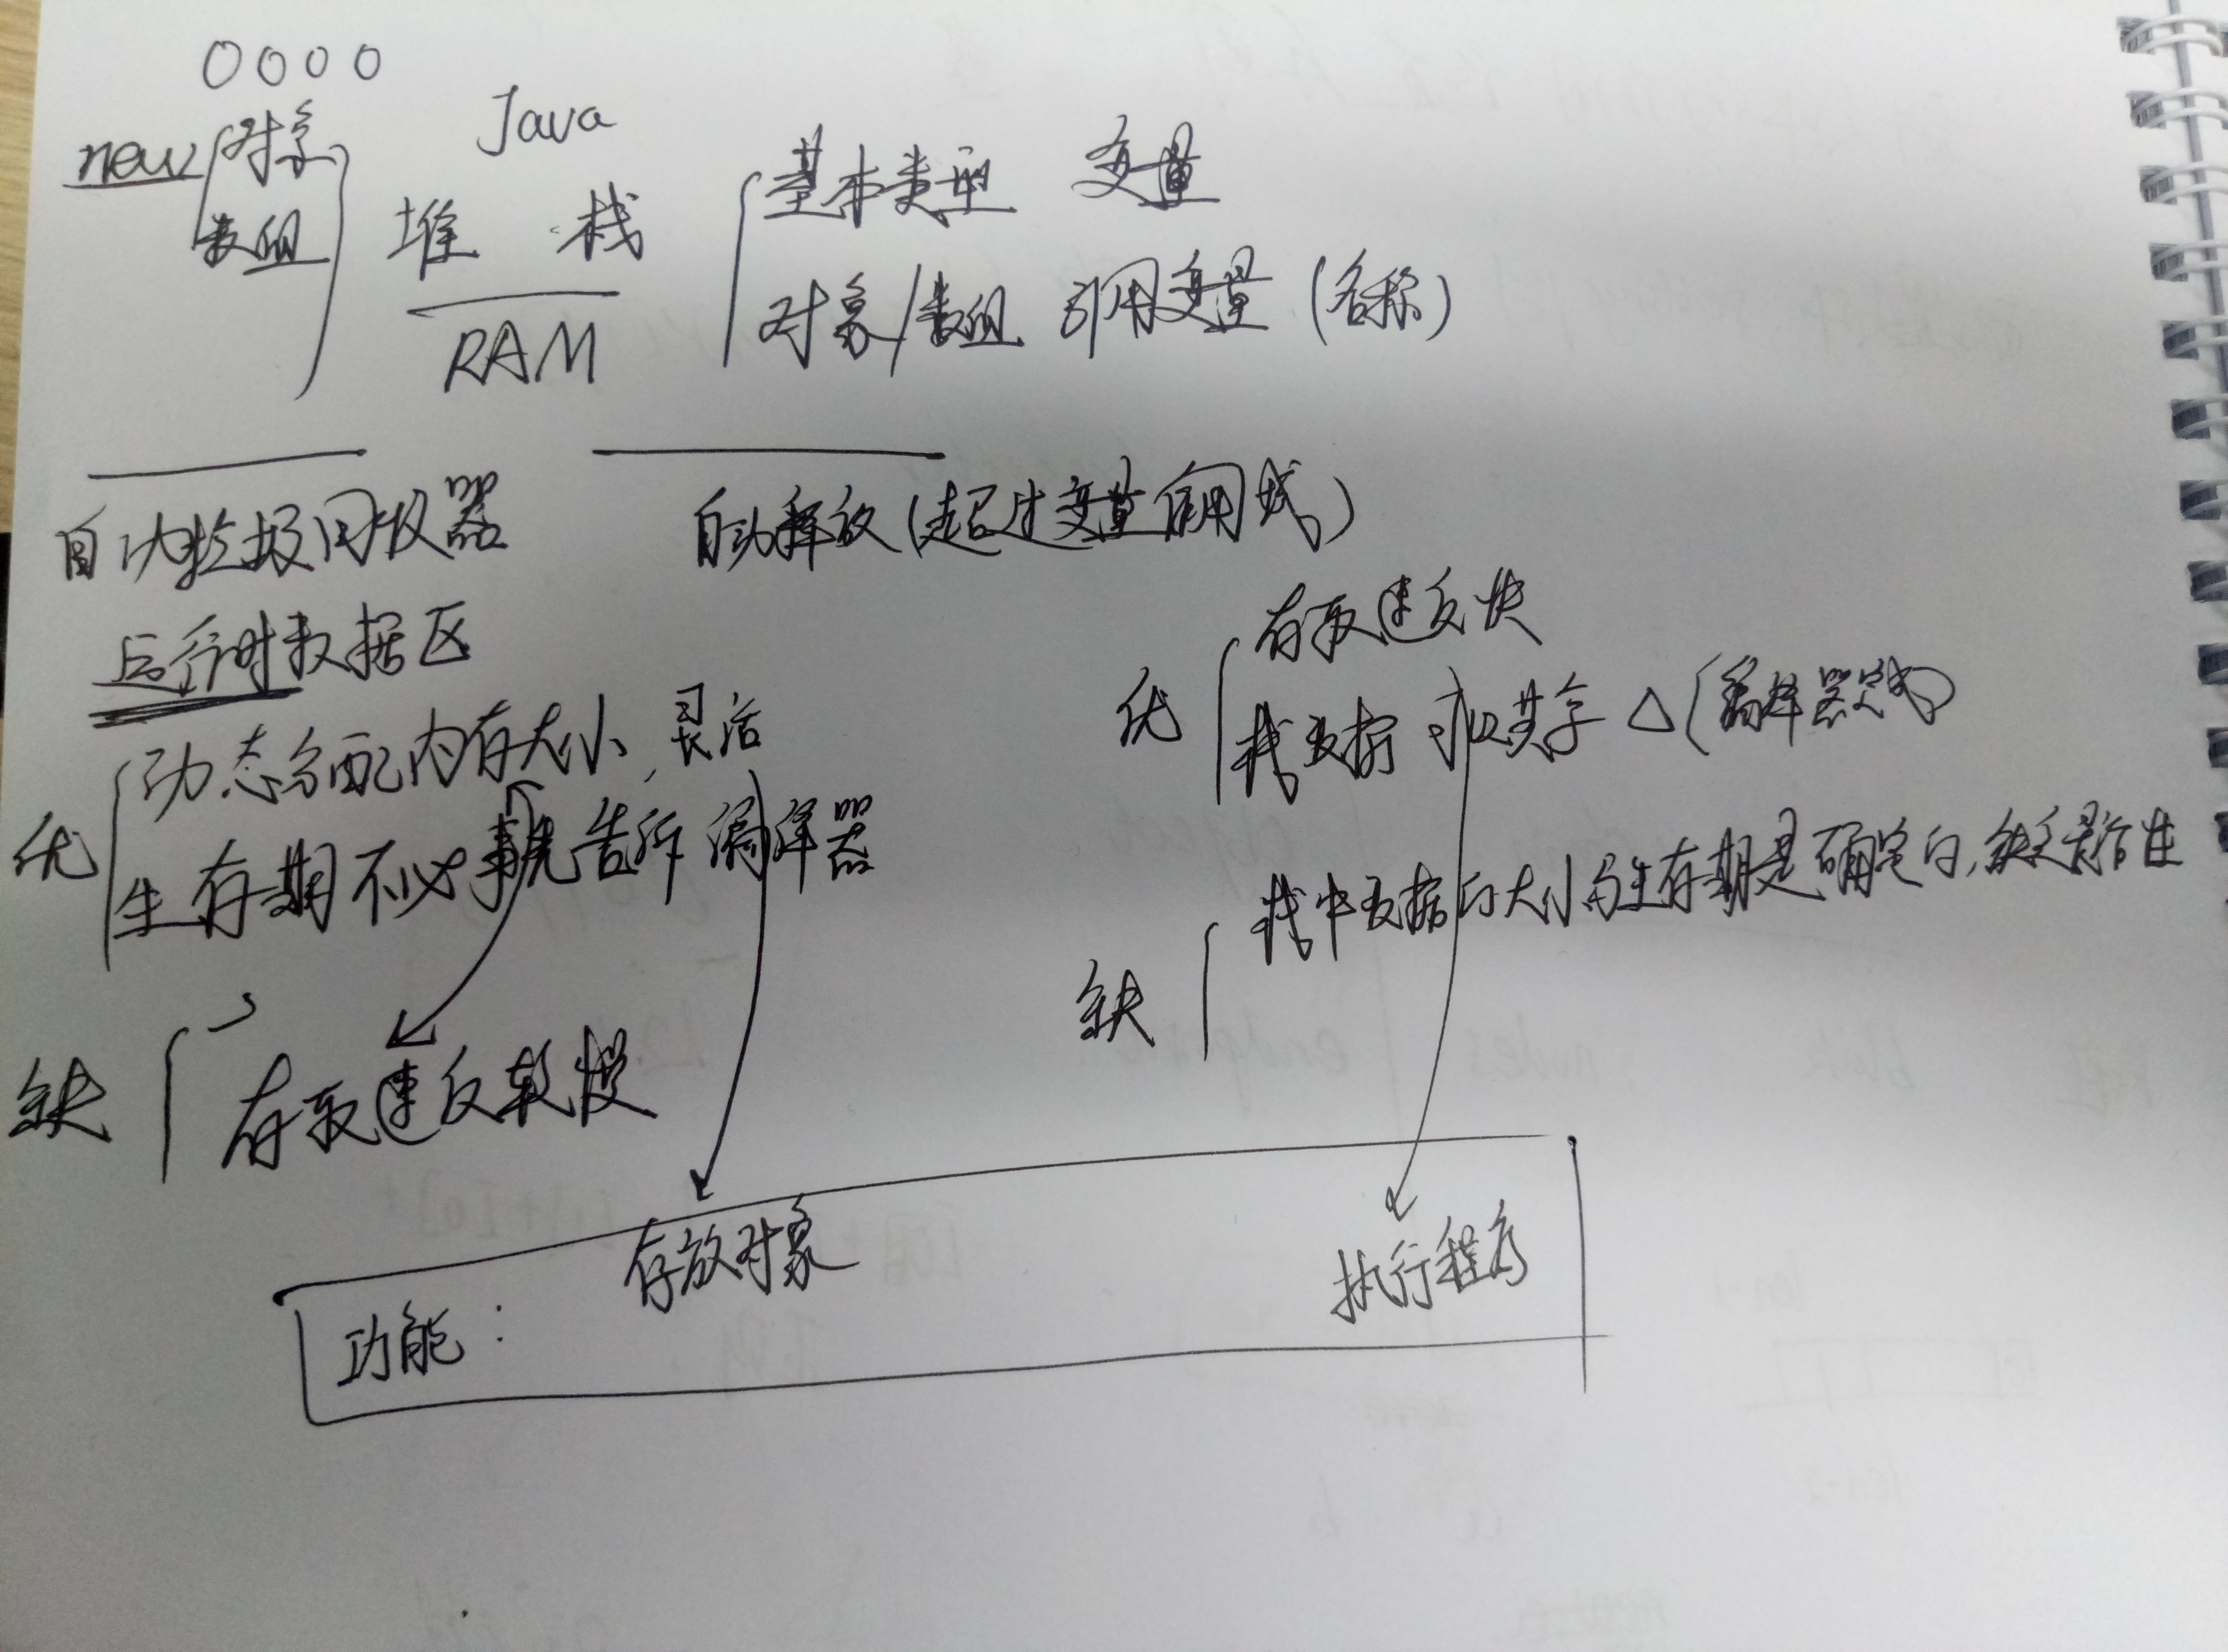 0000
Java
new 对象 数组
堆 栈
RAM
基本类型 变量
对象/数组 引用变量 (名称)
自动垃圾回收器
自动释放(超过变量作用域)
运行时数据区
优
动态分配内存大小,灵活
生存期不必事先告诉编译器
缺
存取速度较慢
优
存取速度快
栈数据可以共享 △(编译器完成)
缺
栈中数据的大小与生存期是确定的,缺乏灵活性
功能:
存放对象
执行程序